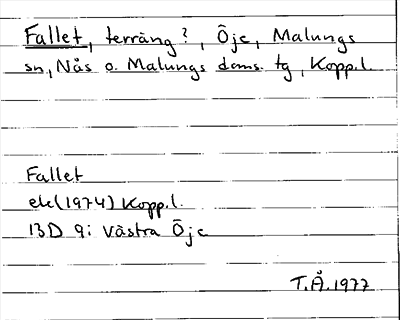 Fallet, terräng?, Öje, Malungs
sn, Nås o. Malungs doms. tg, Kopp.l.
Fallet
ek(1974) Kopp.l.
13D 9i Västra Öje
T.Å.1977